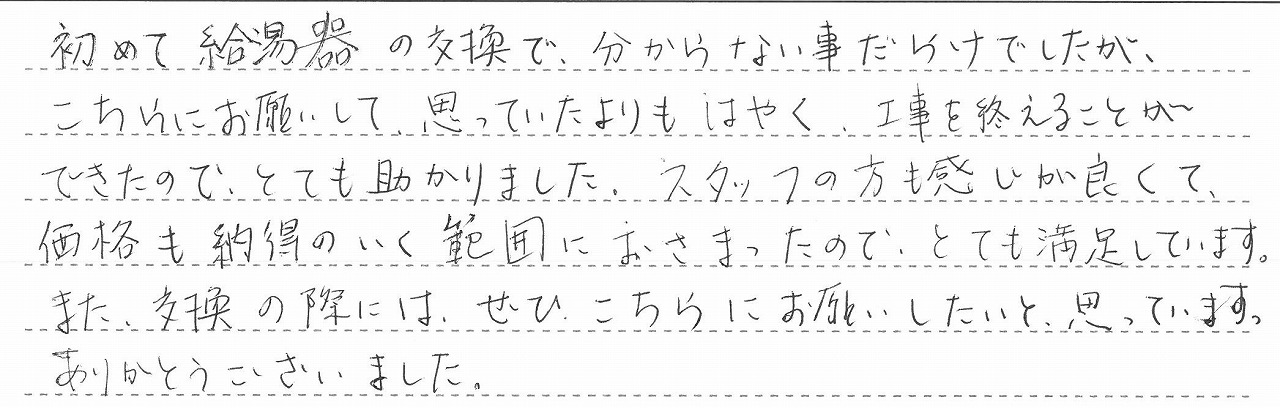 初めて給湯器の交換で、分からない事だらけでしたが、
こちらにお願いして、思っていたよりもはやく、工事を終えることが
できたので、とても助かりました。スタッフの方も感じが良くて、
価格も納得のいく範囲におさまったので、とても満足しています。
また、交換の際には、ぜひ、こちらにお願いしたいと、思っています。
ありがとうございました。